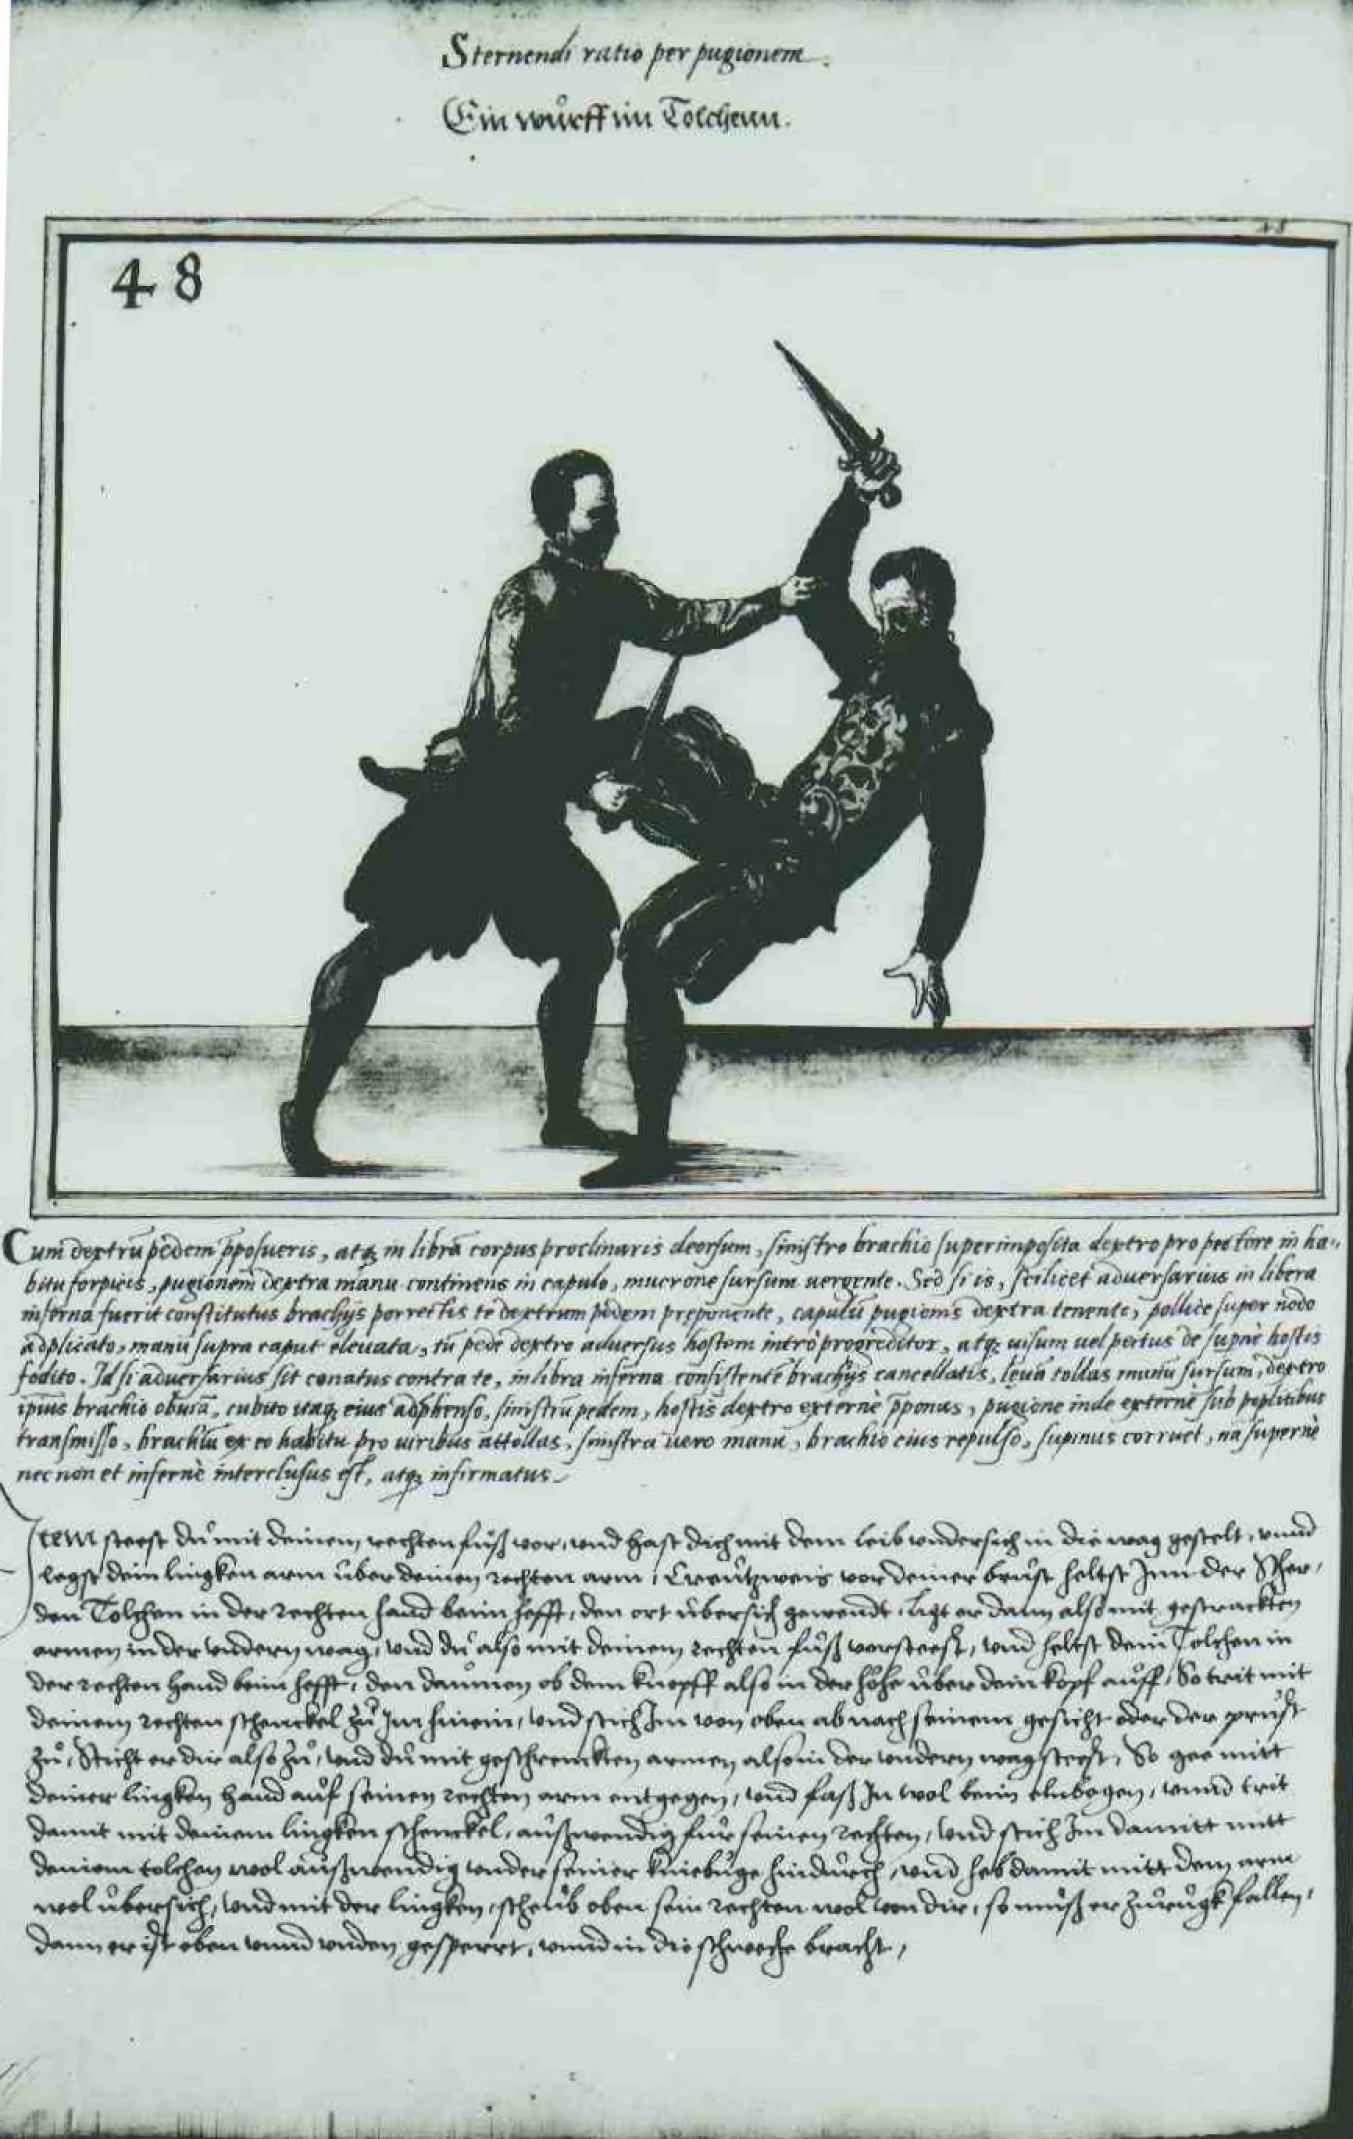 Sternendi ratio per pugionem.
Ein wůrff im Tolchenn.
48
48
Cum dextrũ pedem p̃posueris, atq; in librã corpus proclinaris deorsum, sinistro brachio superimposita dextro pro pectore in ha-
bitu forpicis, pugionem dextra manu continens in capulo, mucrone sursum uergente. Sed si is, scilicet aduersarius in libera
inferna fuerit constitutus brachijs porrectis te dextrum pedem preponente, capulũ pugionis dextra tenente, pollice super nodo
adplicato, manu supra caput eleuata, tu pede dextro aduersus hostem introprogreditor, atq; uisum uel pectus de supnè hostis
fodito. Id si aduersarius sit conatus contra te, in libra inferna consistente brachijs cancellatis, leuã tollas manũ sursum, dextro
ipsius brachio obuiã, cubito itaq; eius adphenso, sinistrũ pedem, hostis dextro externè p̃ponas, pugione inde externè sub poplitibus
transmisso, brachiũ ex eo habitu pro uiribus attollas, sinistra uero manu, brachio eius repulso, supinus corruet, nã supernè
nec non et infernè interclusus est, atq; infirmatus.
Item steest dů mit deinem rechten fůß vor, vnd hast dich mit dem leib vndersich in die wag gestelt, vnnd
legst dein lingken arm ůber deinen rechten arm, Creůtzweis vor deiner brůst heltst Inn der Scher,
den Tolchen in der rechten hand beim hefft, den ort ůbersich gewendt, ligt er dann also mit gestrackten
armen in der vndern wag, vnd dů also mit deinem rechten fůß vorsteest, vnd heltst dein Tolchen in
der rechten hand beim hefft, den daůmen ob dem knopff also in der höhe ůber dein kopf aůff, So trit mit
deinem rechten schenckel zů Im hinein, vnd stich Im von oben ab nach seinem gesicht oder der průst
zů, Sticht er dir also zů, vnd dů mit geschrenckten armen also in der vndern wag steest, So gee mitt
deiner lingken hand aůf seinen rechten arm entgegen, vnd faß In wol beim elnbogen, vnnd trit
damit mit deinem lingken schenckel, aůßwendig fůr seinen rechten, vnd stich Im damitt mitt
deinem tolchen wol aůßwendig vnder seiner kniebůge hindůrch, vnd heb damit mitt dem arm
wol ůbersich, vnd mit der lingken, scheůb oben sein rechten wol von dir, so můß er zůrůgk fallen,
dann er ist oben vnnd vnden gesperrt, vnnd in die schweche bracht,